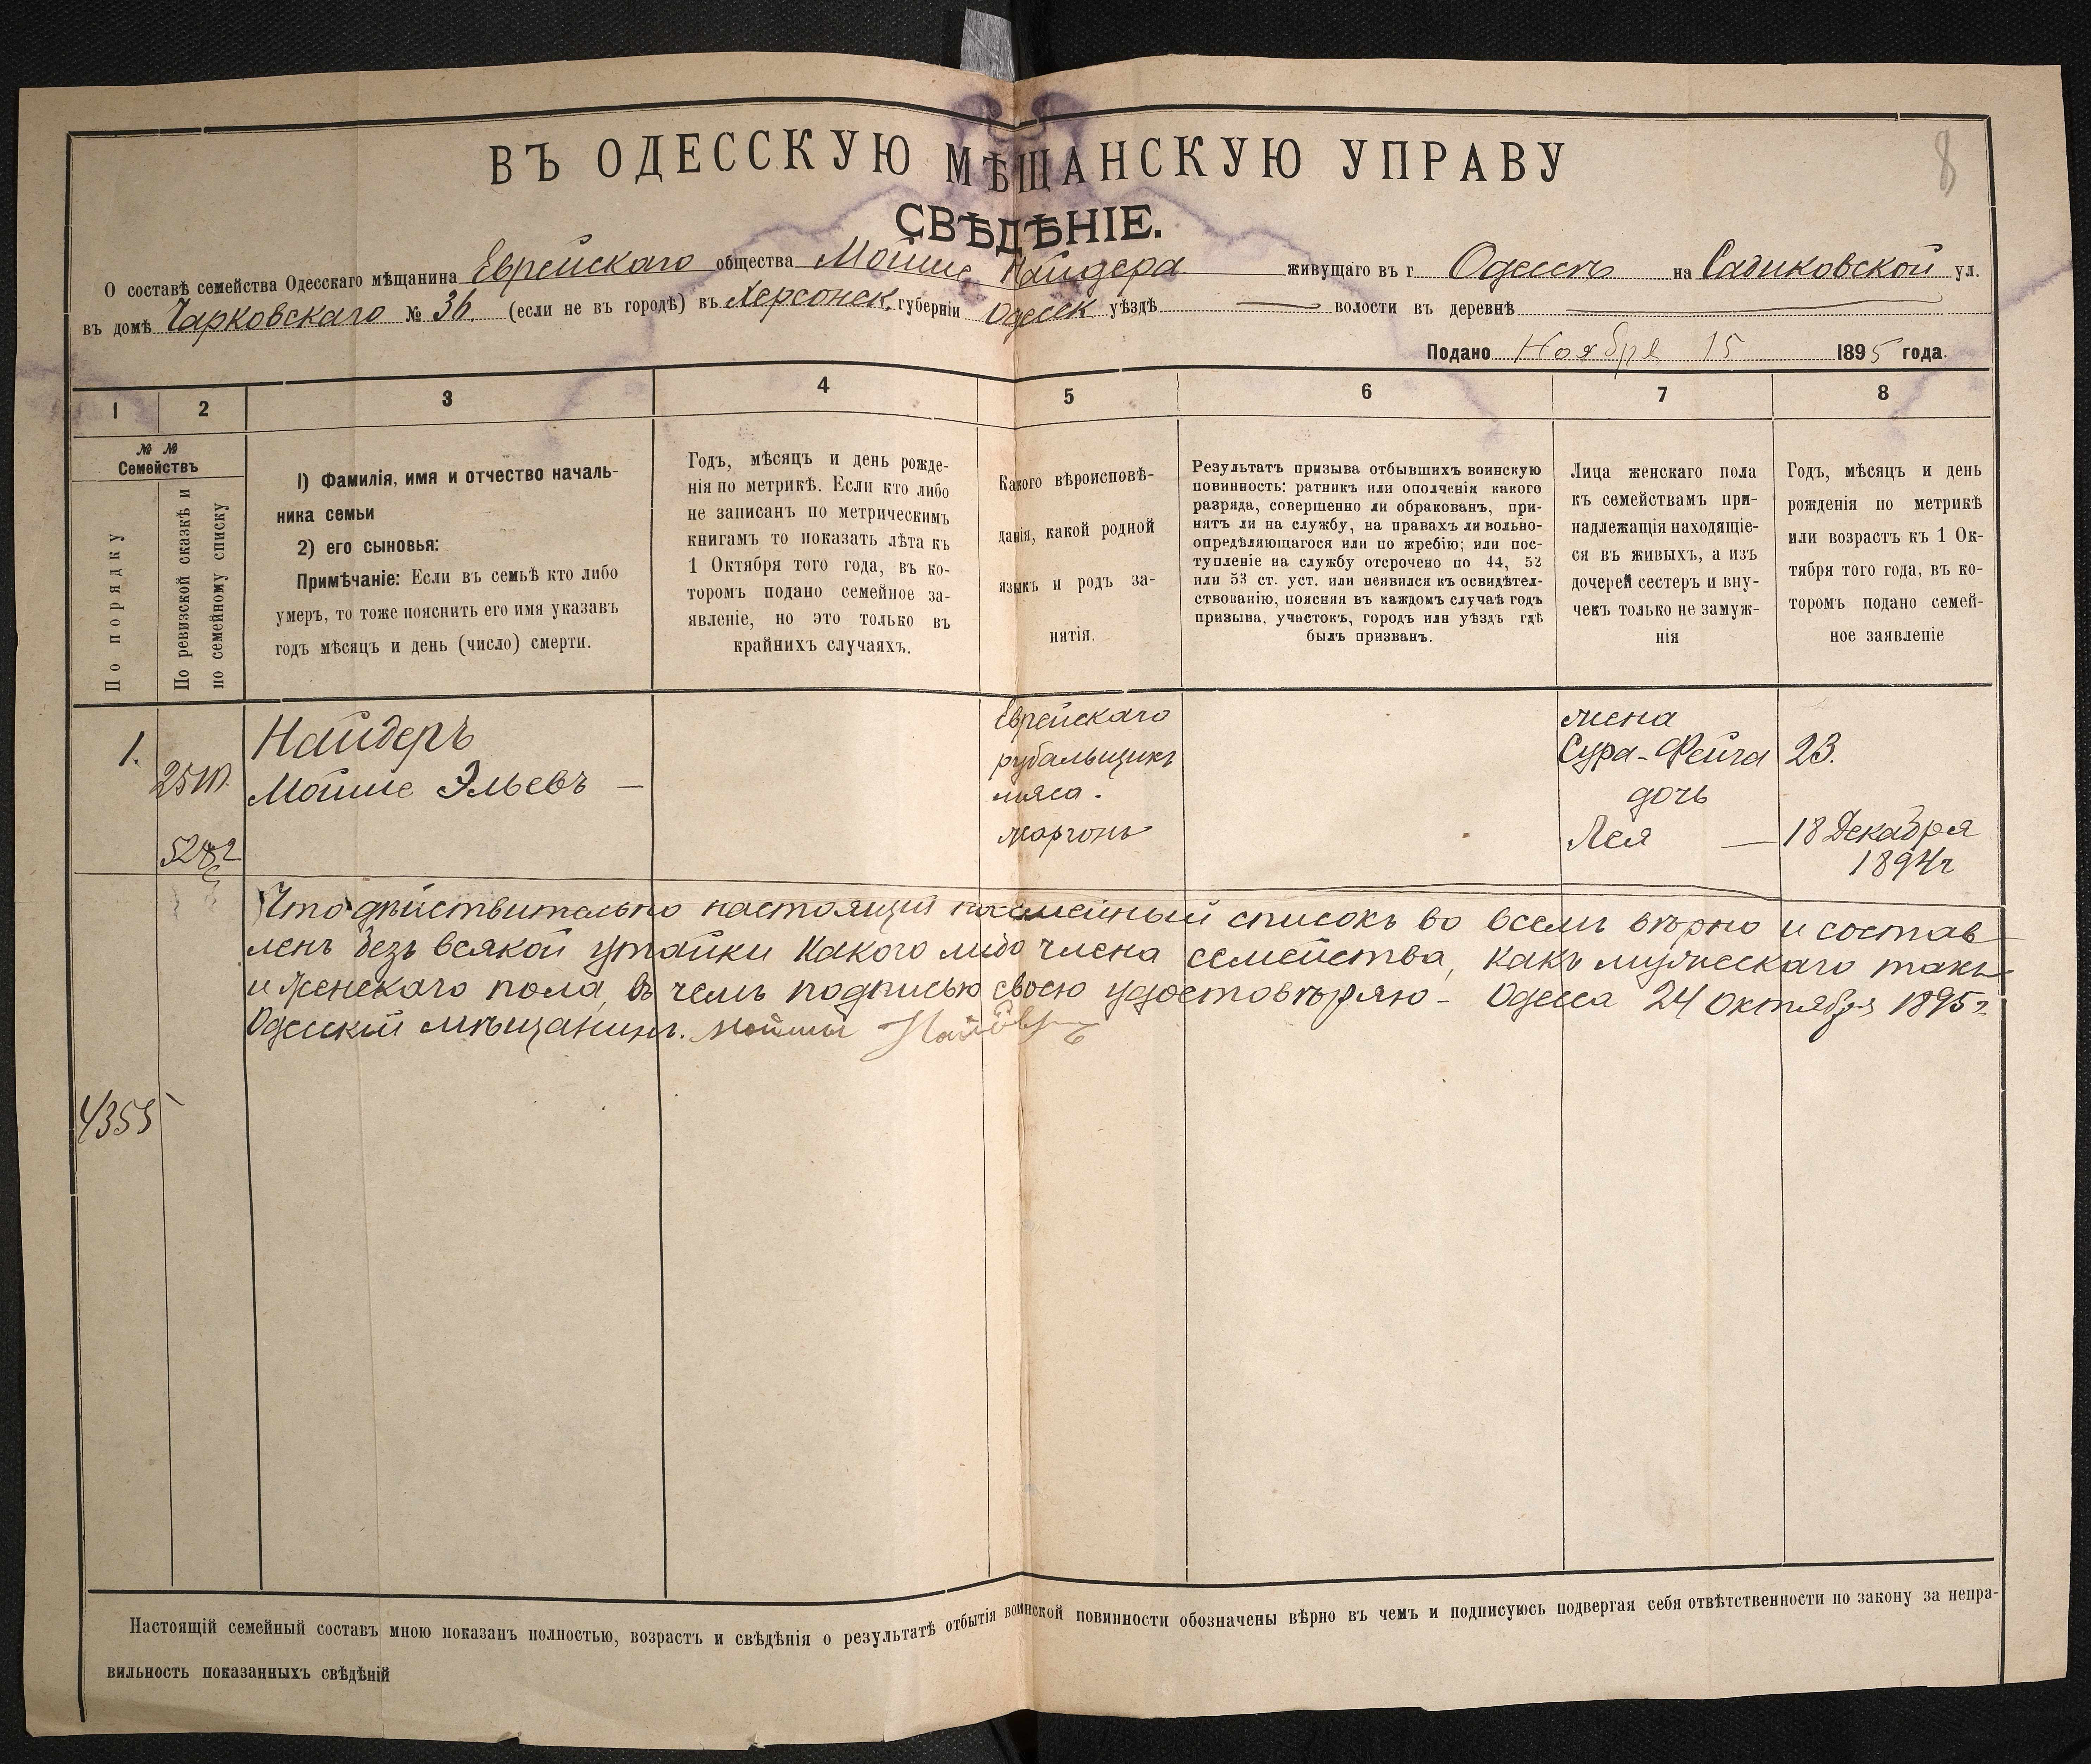 8
ВЪ ОДЕССКУЮ МѢЩАНСКУЮ УПРАВУ
СВѢДѢНІЕ.
О составѣ семейства Одесскаго мѣщанина Еврейскаго общества Мойше Найдера живущаго въ г. Одессѣ на Садиковской ул.
въ домѣ Чарковскаго № 36. (если не въ городѣ) въ Херсонск. губерніи Одесск уѣздѣ волости въ деревнѣ
Подано Ноября 15 1895 года.
1 2 3 4 5 6 7 8
№ №
Семействъ
По порядку
По ревизской сказкѣ и
по семейному списку
1) Фамилія, имя и отчество началь-
ника семьи
2) его сыновья:
Примѣчаніе: Если въ семьѣ кто либо
умеръ, то тоже пояснить его имя указавъ
годъ мѣсяцъ и день (число) смерти.
Годъ, мѣсяцъ и день рожде-
нія по метрикѣ. Если кто либо
не записанъ по метрическимъ
книгамъ то показать лѣта къ
1 Октября того года, въ ко-
торомъ подано семейное за-
явленіе, но это только въ
крайнихъ случаяхъ.
Какого вѣроисповѣ-
данія, какой родной
языкъ и родъ за-
нятія.
Результатъ призыва отбывшихъ воинскую
повинность: ратникъ или ополченія какого
разряда, совершенно ли обракованъ, при-
нятъ ли на службу, на правахъ ли вольно-
опредѣляющагося или по жребію; или пос-
тупленіе на службу отсрочено по 44, 52
или 53 ст. уст. или неявился къ освидѣтел-
ствованію, поясняя въ каждомъ случаѣ годъ
призыва, участокъ, городъ или уѣздъ гдѣ
былъ призванъ.
Лица женскаго пола
къ семействамъ при-
надлежащія находящіе-
ся въ живыхъ, а изъ
дочерей сестеръ и вну-
чекъ только не замуж-
нія
Годъ, мѣсяцъ и день
рожденія по метрикѣ
или возрастъ къ 1 Ок-
тября того года, въ ко-
торомъ подано семей-
ное заявленіе
1.
Найдеръ
Мойше Эльевъ —
Еврейскаго
рубальщикъ
мяса.
жаргонъ
жена
Сура-Фейга 23.
дочь
Лея — 18 Декабря
1894г
Что дѣйствительно настоящій посемейный списокъ во всемъ вѣрно и состав
ленъ безъ всякой утайки какого либо члена семейства, какъ мужескаго такъ
и женскаго пола, въ чемъ подписью своею удостовѣряю - Одесса 24 октября 1895 г.
Одесскій мѣщанинъ. Мойше Найдеръ
4355
Настоящій семейный составъ мною показанъ полностью, возрастъ и свѣдѣнія о результатѣ отбытія воинской повинности обозначены вѣрно въ чемъ и подписуюсь подвергая себя отвѣтственности по закону за непра-
вильность показанныхъ свѣдѣній